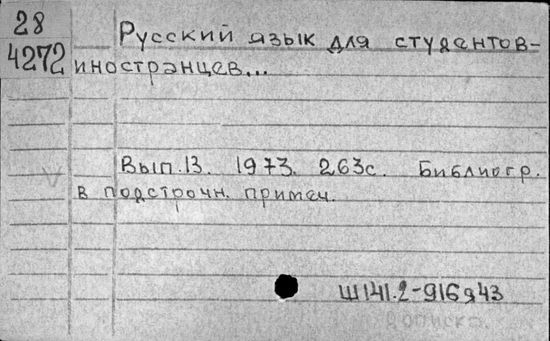 28
4272
Русский язык для студентов-
иностранцев...
Вып.13. 1973. 263с. Библиогр.
в подстрочн. примеч.
Ш141.2-916я43
дописка.